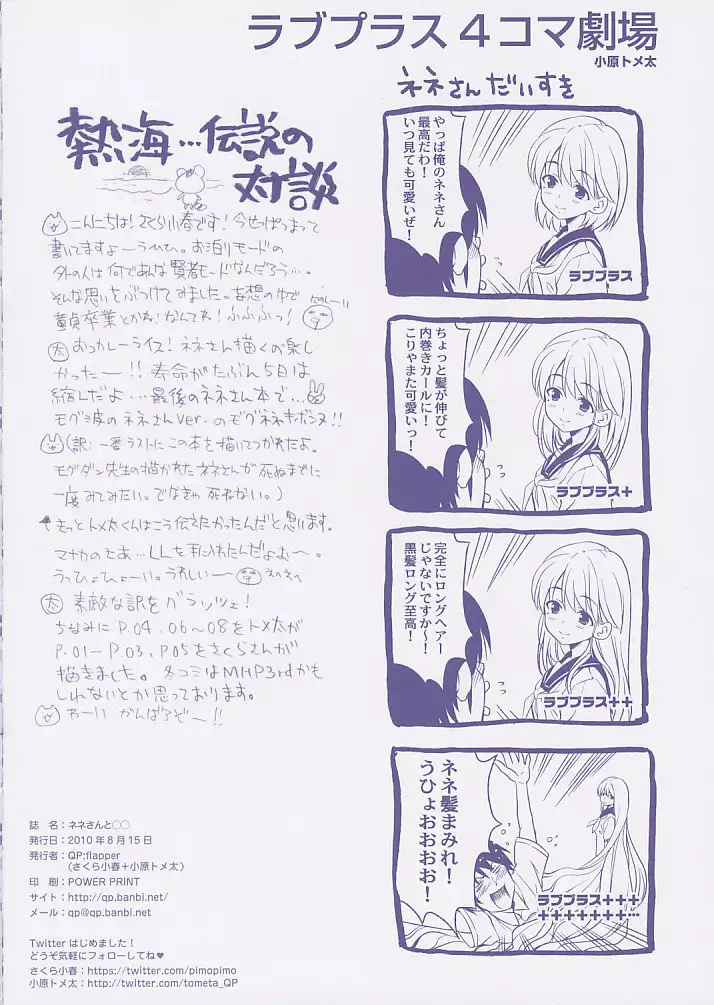 ラブプラス４コマ劇場
小原トメ太
ネネさんだいすき
やっぱ俺のネネさん
最高だわ！
いつ見ても可愛いぜ！
ラブプラス
ちょっと髪が伸びて
内巻きカールに！
こりゃまた可愛いっ！
ラブプラス+
完全にロングヘアー
じゃないですか～！
黒髪ロング至高！
ラブプラス++
ネネ髪まみれ！
うひょおおおおお！
ラブプラス+++
+++++++…
熱海…伝説の
対談
こんにちは！さくら小春です！今せっぱつまって
書いてますよーうひひ。お泊りモードの
外の人は何であんな賢者モードなんだろう…。
そんな思いをぶつけてみました。妄想の中で
童貞卒業とかね！なんてね！ふふふっ！
太 おっかレーライス！ネネさん描くの楽し
かったー！！寿命がたぶん5日は
縮んだよ…最後のネネさん本で…
モグ波のネネさんver.のモグネネキボンヌ!!
(訳:一番ラストにこの本を描いてつかれたよ。
モグダン先生の描かれたネネさんが死ぬまでに
一度みてみたい。でなきゃ死ねない。)
きっとトメ太くんはこう伝えたかったんだと思います。
マナカのさあ…LLを手に入れたんだよおむ〜。
うっひょひょーい。うれしい〜
太 素敵な訳をグラッツェ！
ちなみにP.04,06〜08をトメ太が
P.01〜P.03,P05をさくらさんが
描きました。冬コミはMHP3rdかも
しれないとか思っております。
わーい がんばるぞー!!
誌　名：ネネさんと○○
発行日：2010年8月15日
発行者：QP:flapper
(さくら小春＋小原トメ太)
印　刷：POWER PRINT
サイト：http://qp.banbi.net/
メール：qp@qp.banbi.net
Twitterはじめました！
どうぞ気軽にフォローしてね♥
さくら小春：https://twitter.com/pimopimo
小原トメ太：http://twitter.com/tometa_QP